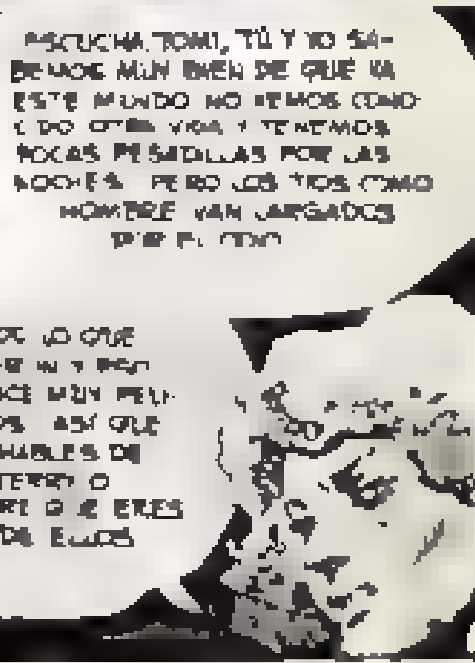 ESCUCHA, TOMI, TÚ Y YO SA-
BEMOS MUY BIEN DE QUÉ VA
ESTE MUNDO NO HEMOS CONO-
CIDO OTRA VIDA Y TENEMOS
POCAS PESADILLAS POR LAS
NOCHES PERO LOS TIOS COMO
HOMBRE VAN CARGADOS
POR EL ODIO
LO QUE
MUY PELI-
ASÍ QUE
HABLES DE
O
QUE ERES
DE ELLOS